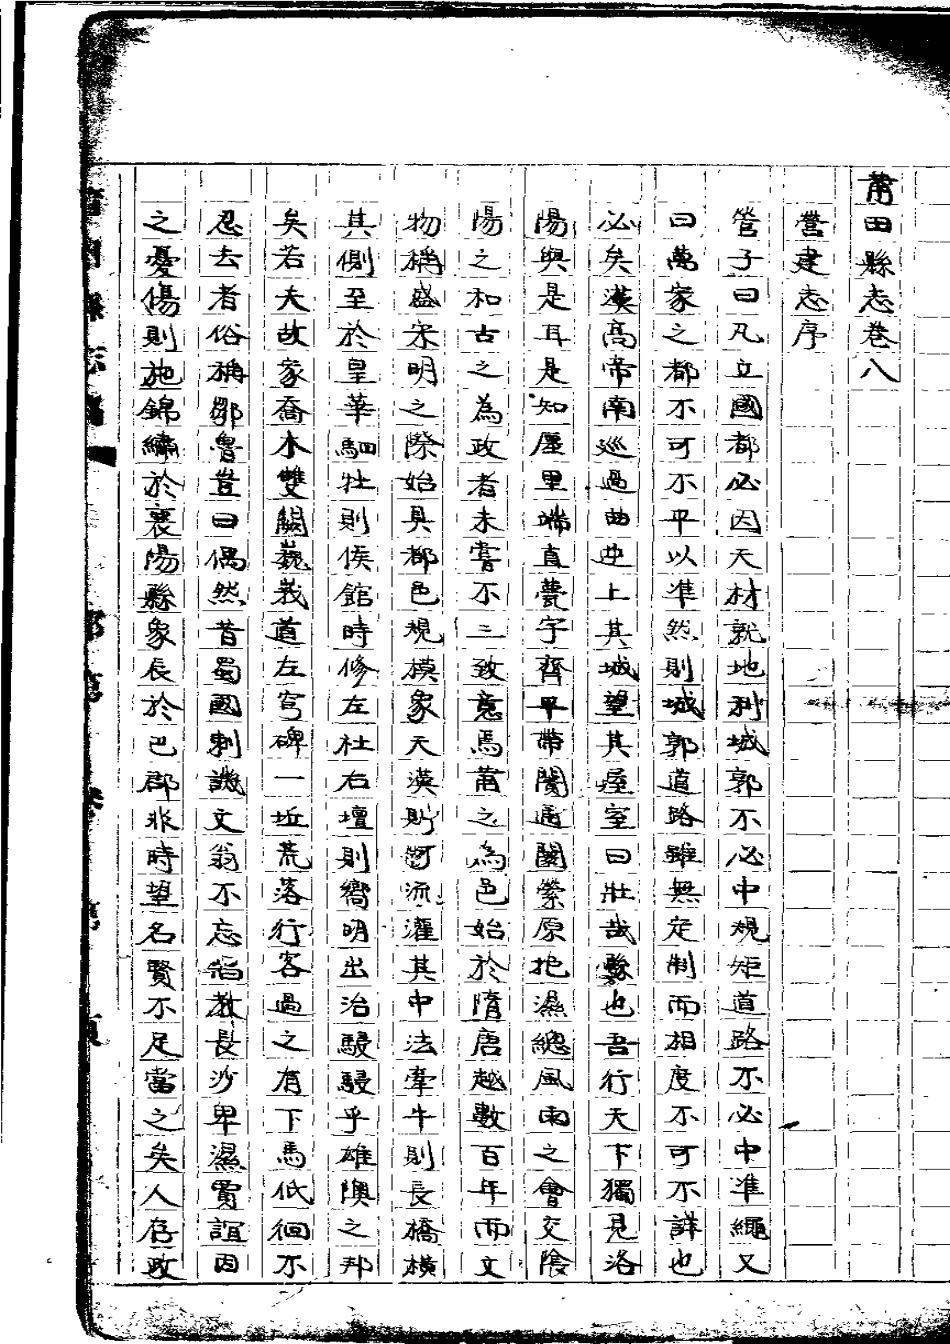 莆田縣志卷八
營建志序
管子曰凡立國都必因天材就地利城郭不必中規矩道路不必中准繩又
曰萬家之都不可不平以准然則城郭道路雖無定制而相度不可不詳也
必矣漢高帝南巡過曲逆上其城望其屋室曰壯哉縣也吾行天下獨見洛
陽與是耳是知廛里端直甍宇齊平帶闤通闠縈原抱濕總風雨之會交陰
陽之和古之為政者未嘗不三致意焉莆之為邑始於隋唐越數百年而文
物稱盛宋明之際始具都邑規模象天漢則河流灌其中法牽牛則長橋橫
其側至於皇華駟牡則侯館時修左社右壇則嚮明出治駸駸乎雄隩之邦
矣若夫故家喬木雙闕巍峩道左穹碑一坵荒落行客過之有下馬低徊不
忍去者俗稱鄒魯豈曰偶然昔蜀國刺譏文翁不忘治教長沙卑濕賈誼因
之憂傷則施錦繡於襄陽縣象長於巴郡非時望名賢不足當之矣人存政